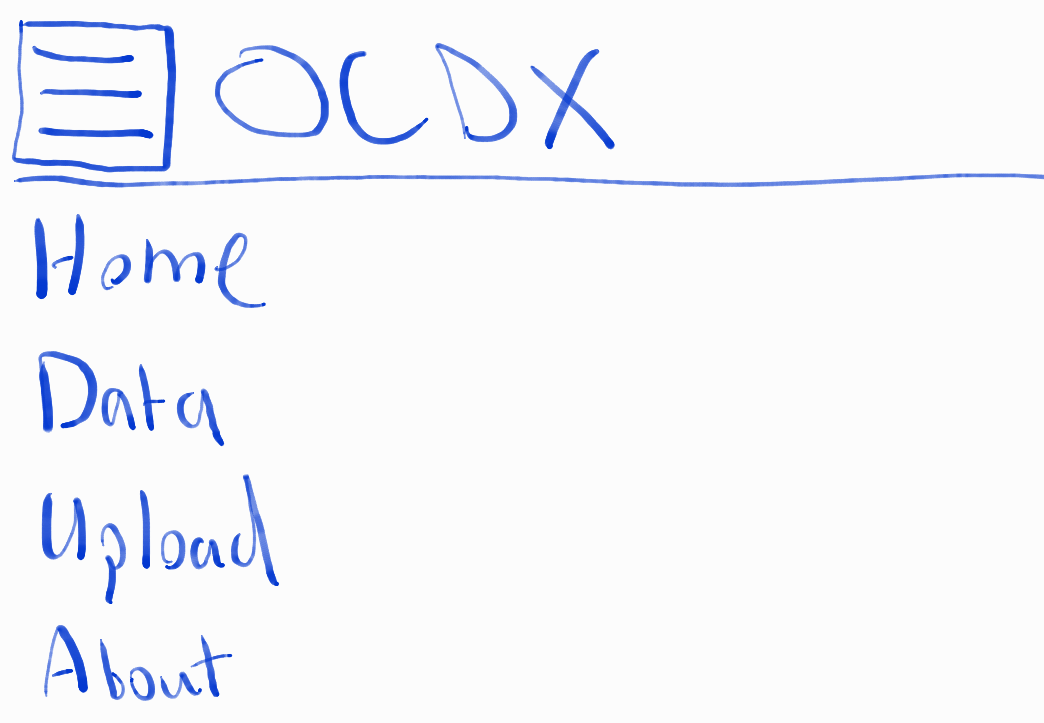 OCDX
Home
Data
Upload
About